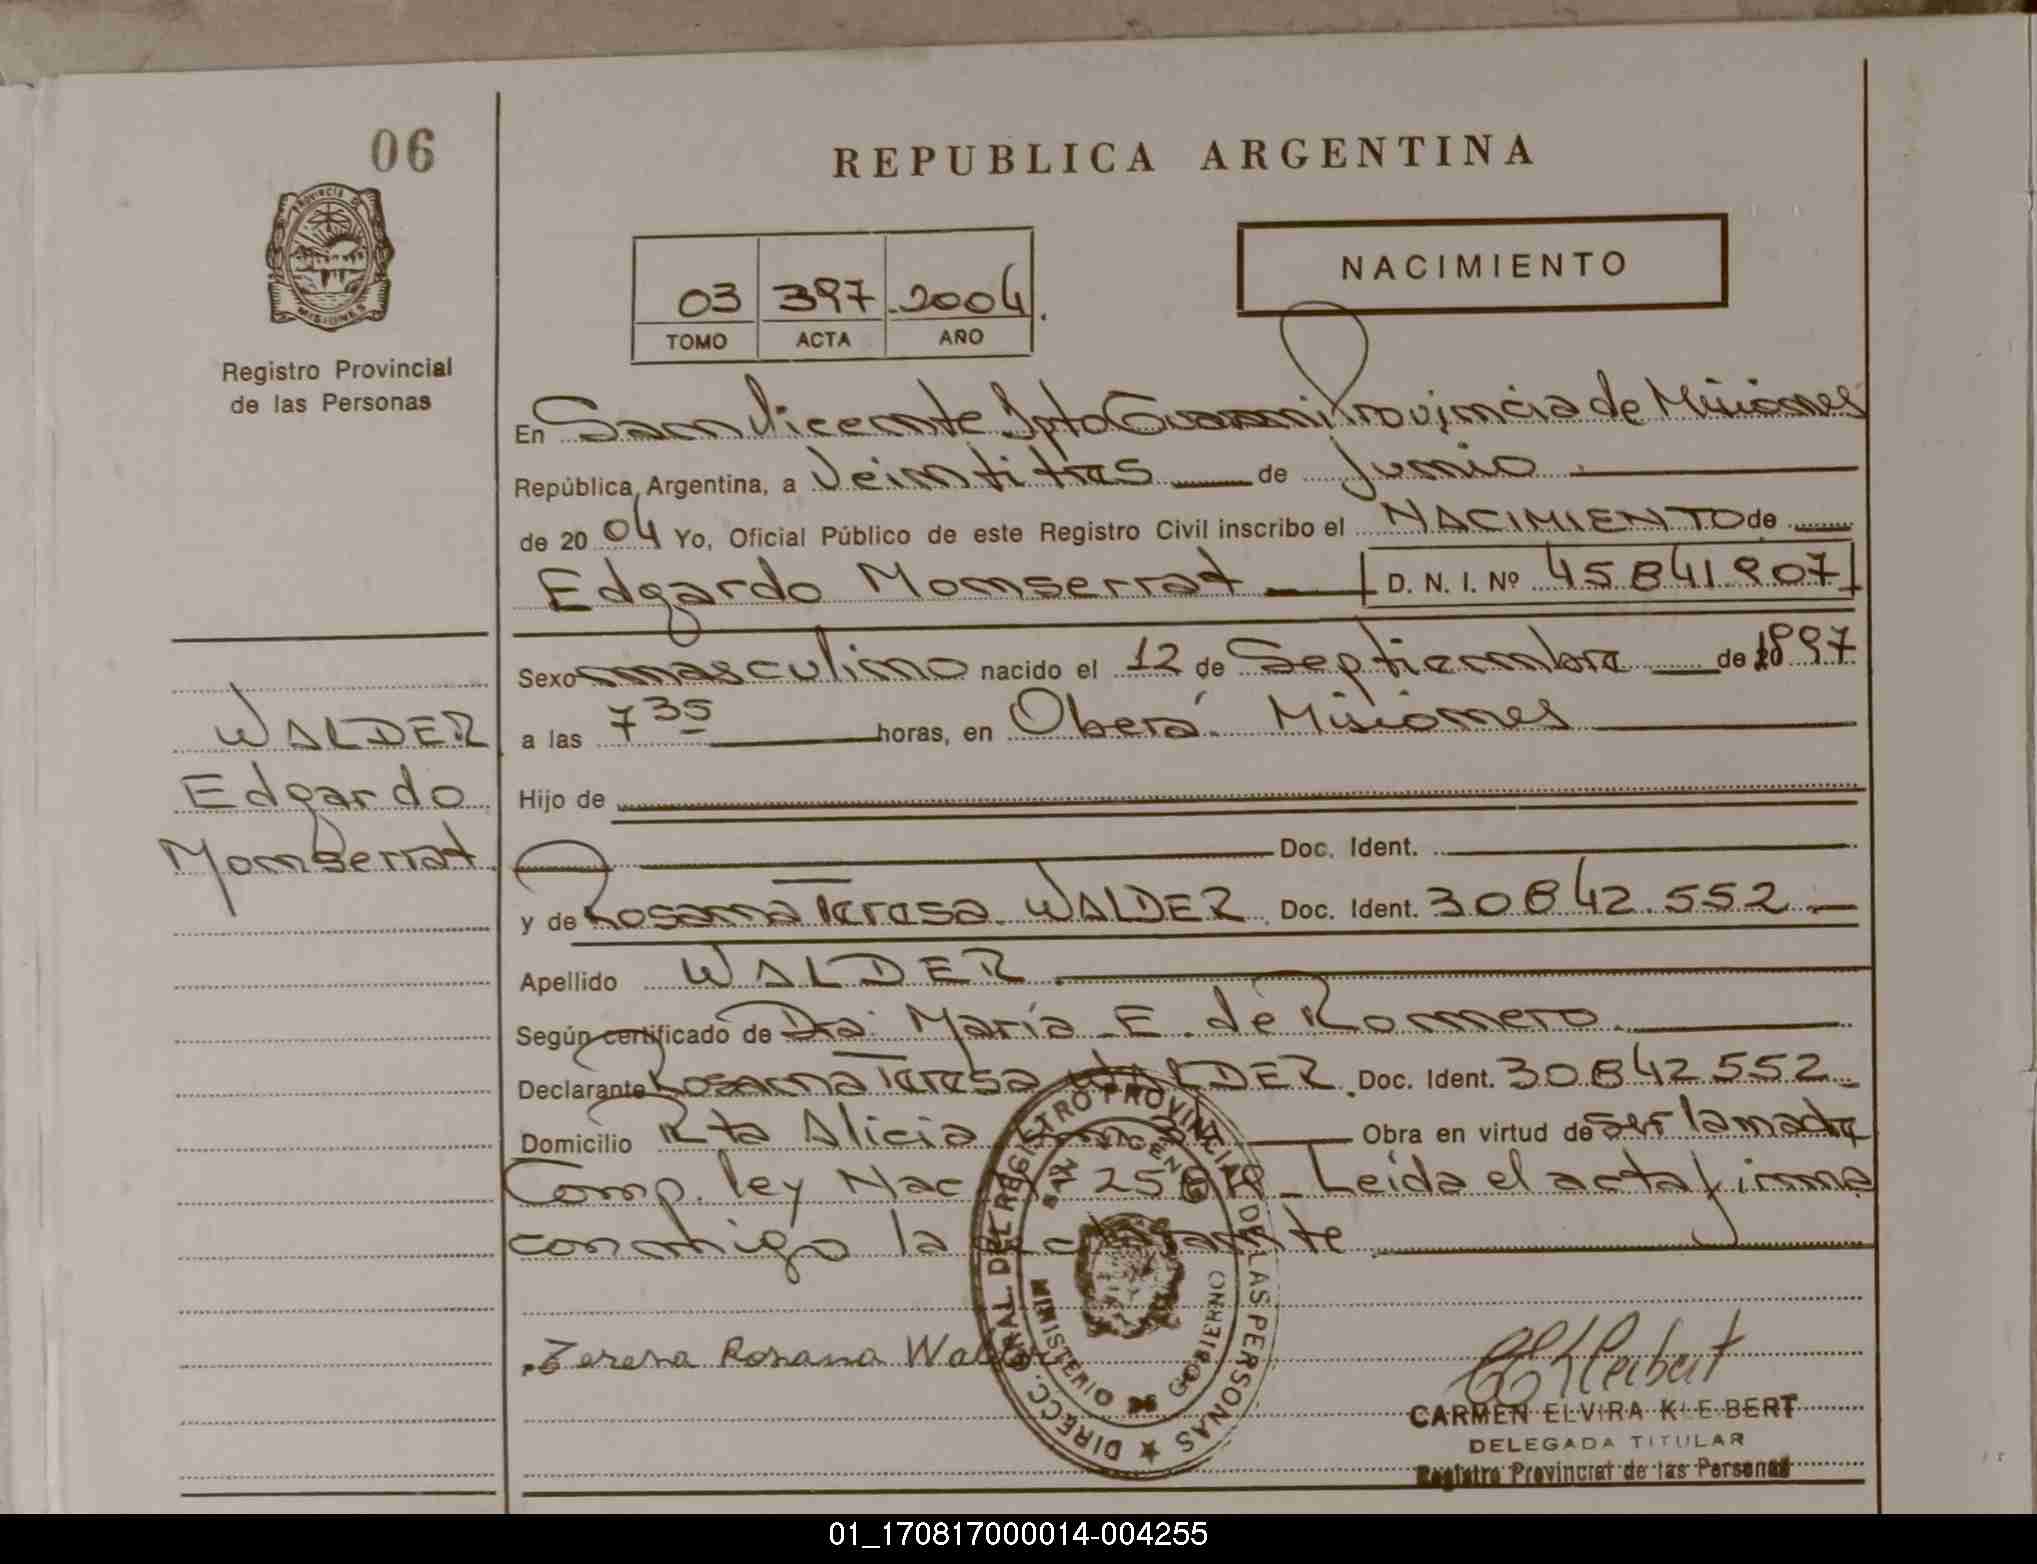 06
REPUBLICA ARGENTINA
PROVINCIA DE
MISIONES
NACIMIENTO
03 397 2004
TOMO ACTA AÑO
Registro Provincial
de las Personas
En San Vicente Dpto Guarani Provincia de Misiones
República Argentina, a Veintitres de Junio
de 2004 Yo, Oficial Público de este Registro Civil inscribo el NACIMIENTO de
Edgardo Monserrat D. N. I. Nº
Sexo masculino nacido el 12 de Septiembre de 1997
a las 7 35 horas, en Oberá. Misiones
WALDER
Edgardo
Monserrat
Hijo de
Doc. Ident.
y de Rosana Teresa WALDER Doc. Ident. 30842.552
Apellido WALDER
Según certificado de Dra. María E. de Romero.
Declarante Rosana Teresa WALDER Doc. Ident. 30842552
Domicilio Rta Alicia Obra en virtud de ser la madre
Comp. ley Nac 25 Leida el acta firma
conmigo la declarante
Teresa Rosana
DIRECC. GRAL. DEL REGISTRO PROVINCIAL DE LAS PERSONAS
SAN VICENTE
MINISTERIO DE GOBIERNO
CEKleibert
CARMEN ELVIRA KLEBERT
DELEGADA TITULAR
Registro Provincial de las Personas
01_170817000014-004255